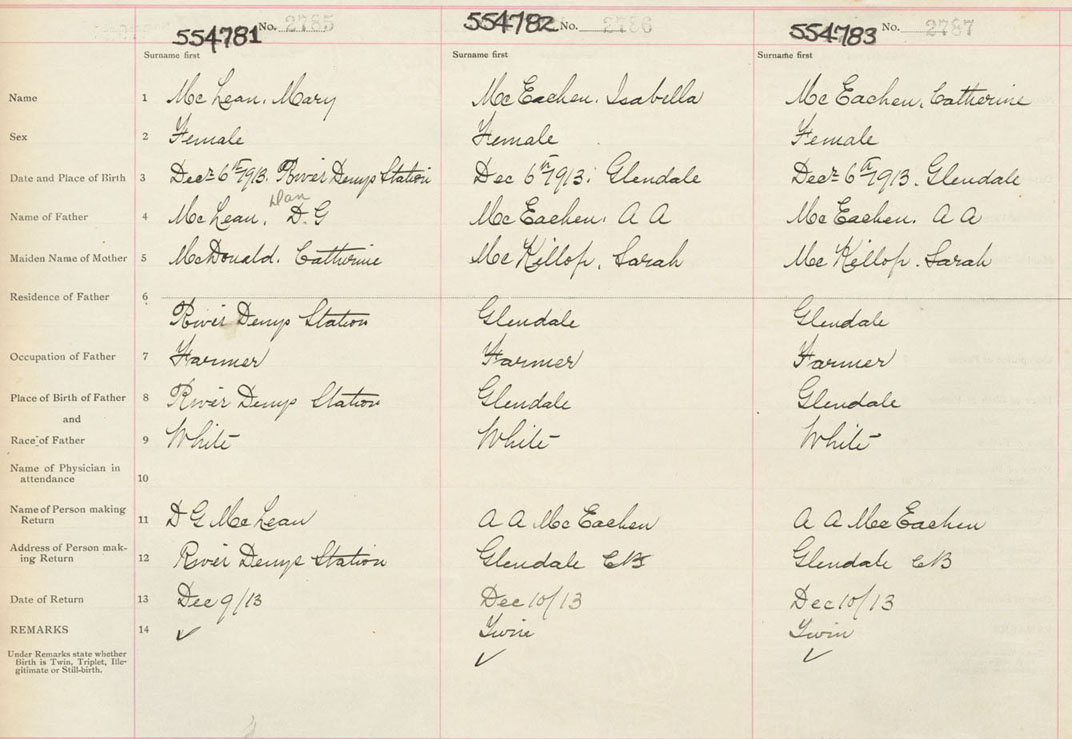 554781 No. 2785 554782 No. 2786 554783 No. 2787
Surname first Surname first Surname first
Name 1 McLean, Mary McEachen, Isabella McEachen, Catherine
Sex 2 Female Female Female
Date and Place of Birth 3 Decr 6th 1913. River Denys Station Dec 6th 1913. Glendale Decr 6th 1913. Glendale
Dan
Name of Father 4 McLean, D.G McEachen, A A McEachen, A A
Maiden Name of Mother 5 McDonald, Catherine McKillop, Sarah McKillop, Sarah
Residence of Father 6
River Denys Station Glendale Glendale
Occupation of Father 7 Farmer Farmer Farmer
Place of Birth of Father 8 River Denys Station Glendale Glendale
and
Race of Father 9 White White White
Name of Physician in
attendance 10
Name of Person making
Return 11 D G McLean A A McEachen A A MacEachen
Address of Person mak-
ing Return 12 River Denys Station Glendale CB Glendale CB
Date of Return 13 Dec 9/13 Dec 10/13 Dec 10/13
REMARKS 14 ✓ Twin Twin
✓ ✓
Under Remarks state whether
Birth is Twin, Triplet, Ille-
gitimate or Still-birth.